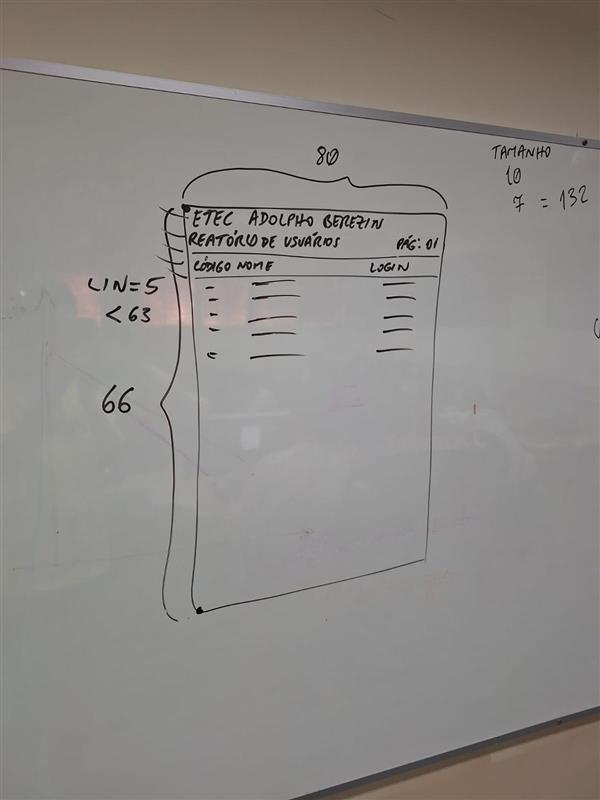 80
TAMANHO
10
7 = 132
ETEC ADOLPHO BEREZIN
REATÓRIO DE USUÁRIOS PÁG: 01
CÓDIGO NOME LOGIN
LIN=5
<63
66